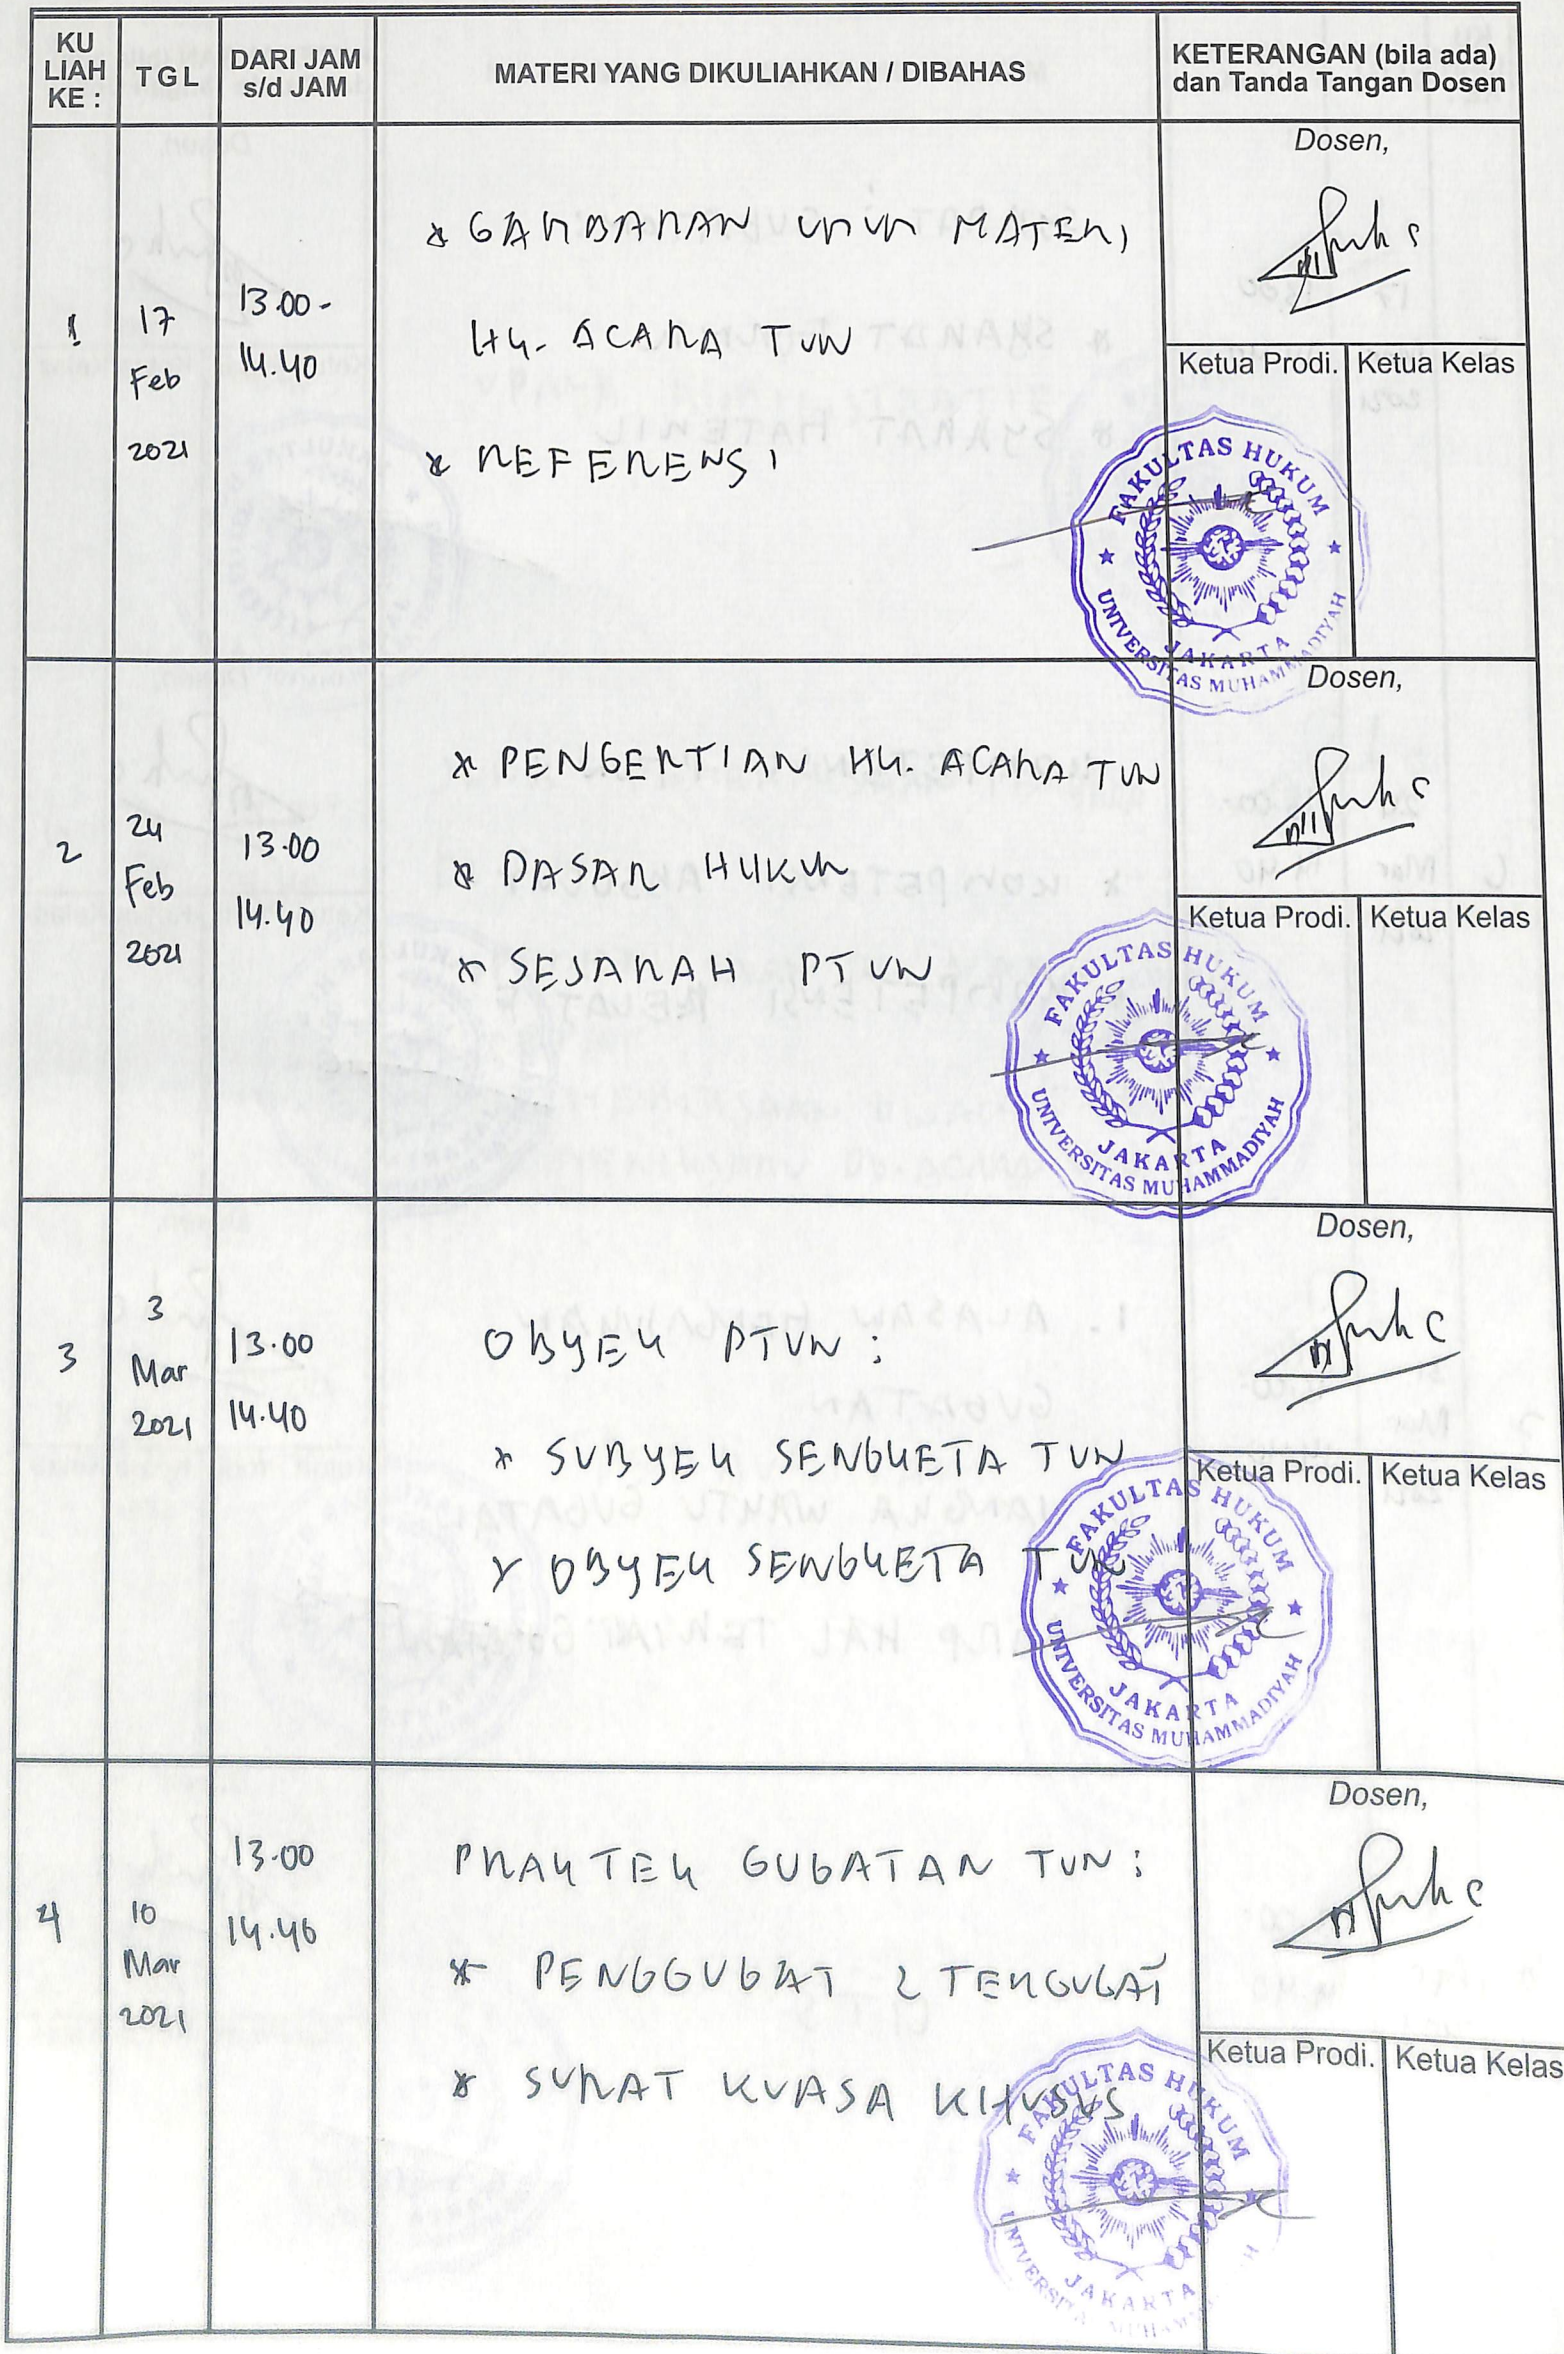 KU LIAH KE :
TGL
DARI JAM s/d JAM
MATERI YANG DIKULIAHKAN / DIBAHAS
KETERANGAN (bila ada) dan Tanda Tangan Dosen
1
17 Feb 2021
13.00 - 14.40
* GAMBARAN UMUM MATERI
HK. ACARA TUN
* REFERENSI
Dosen,
Ketua Prodi.
Ketua Kelas
FAKULTAS HUKUM
UNIVERSITAS MUHAMMADIYAH
JAKARTA
2
24 Feb 2021
13.00 14.40
* PENGERTIAN HK. ACARA TUN
* DASAR HUKUM
* SEJARAH PTUN
Dosen,
Ketua Prodi.
Ketua Kelas
FAKULTAS HUKUM
UNIVERSITAS MUHAMMADIYAH
JAKARTA
3
3 Mar 2021
13.00 14.40
OBYEK PTUN :
* SUBYEK SENGKETA TUN
* OBYEK SENGKETA TUN
Dosen,
Ketua Prodi.
Ketua Kelas
FAKULTAS HUKUM
UNIVERSITAS MUHAMMADIYAH
JAKARTA
4
10 Mar 2021
13.00 14.40
PRAKTEK GUGATAN TUN :
* PENGGUGAT & TERGUGAT
* SURAT KUASA KHUSUS
Dosen,
Ketua Prodi.
Ketua Kelas
FAKULTAS HUKUM
JAKARTA